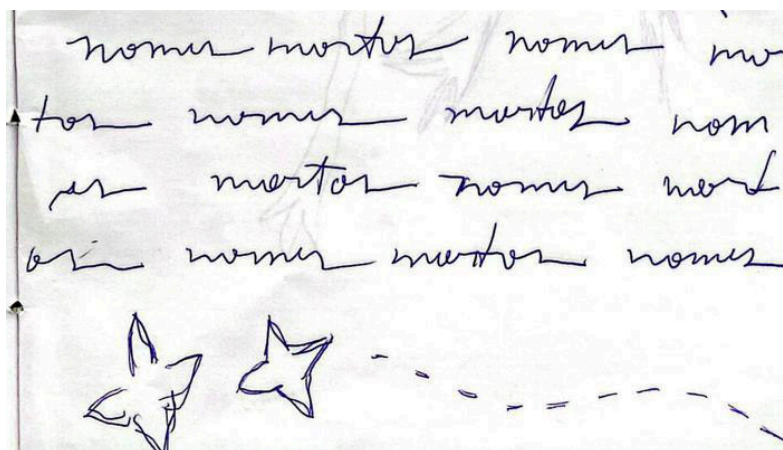 nomes mortos nomes mo
tos nomes mortos nom
es mortos nomes mort
os nomes mortos nomes